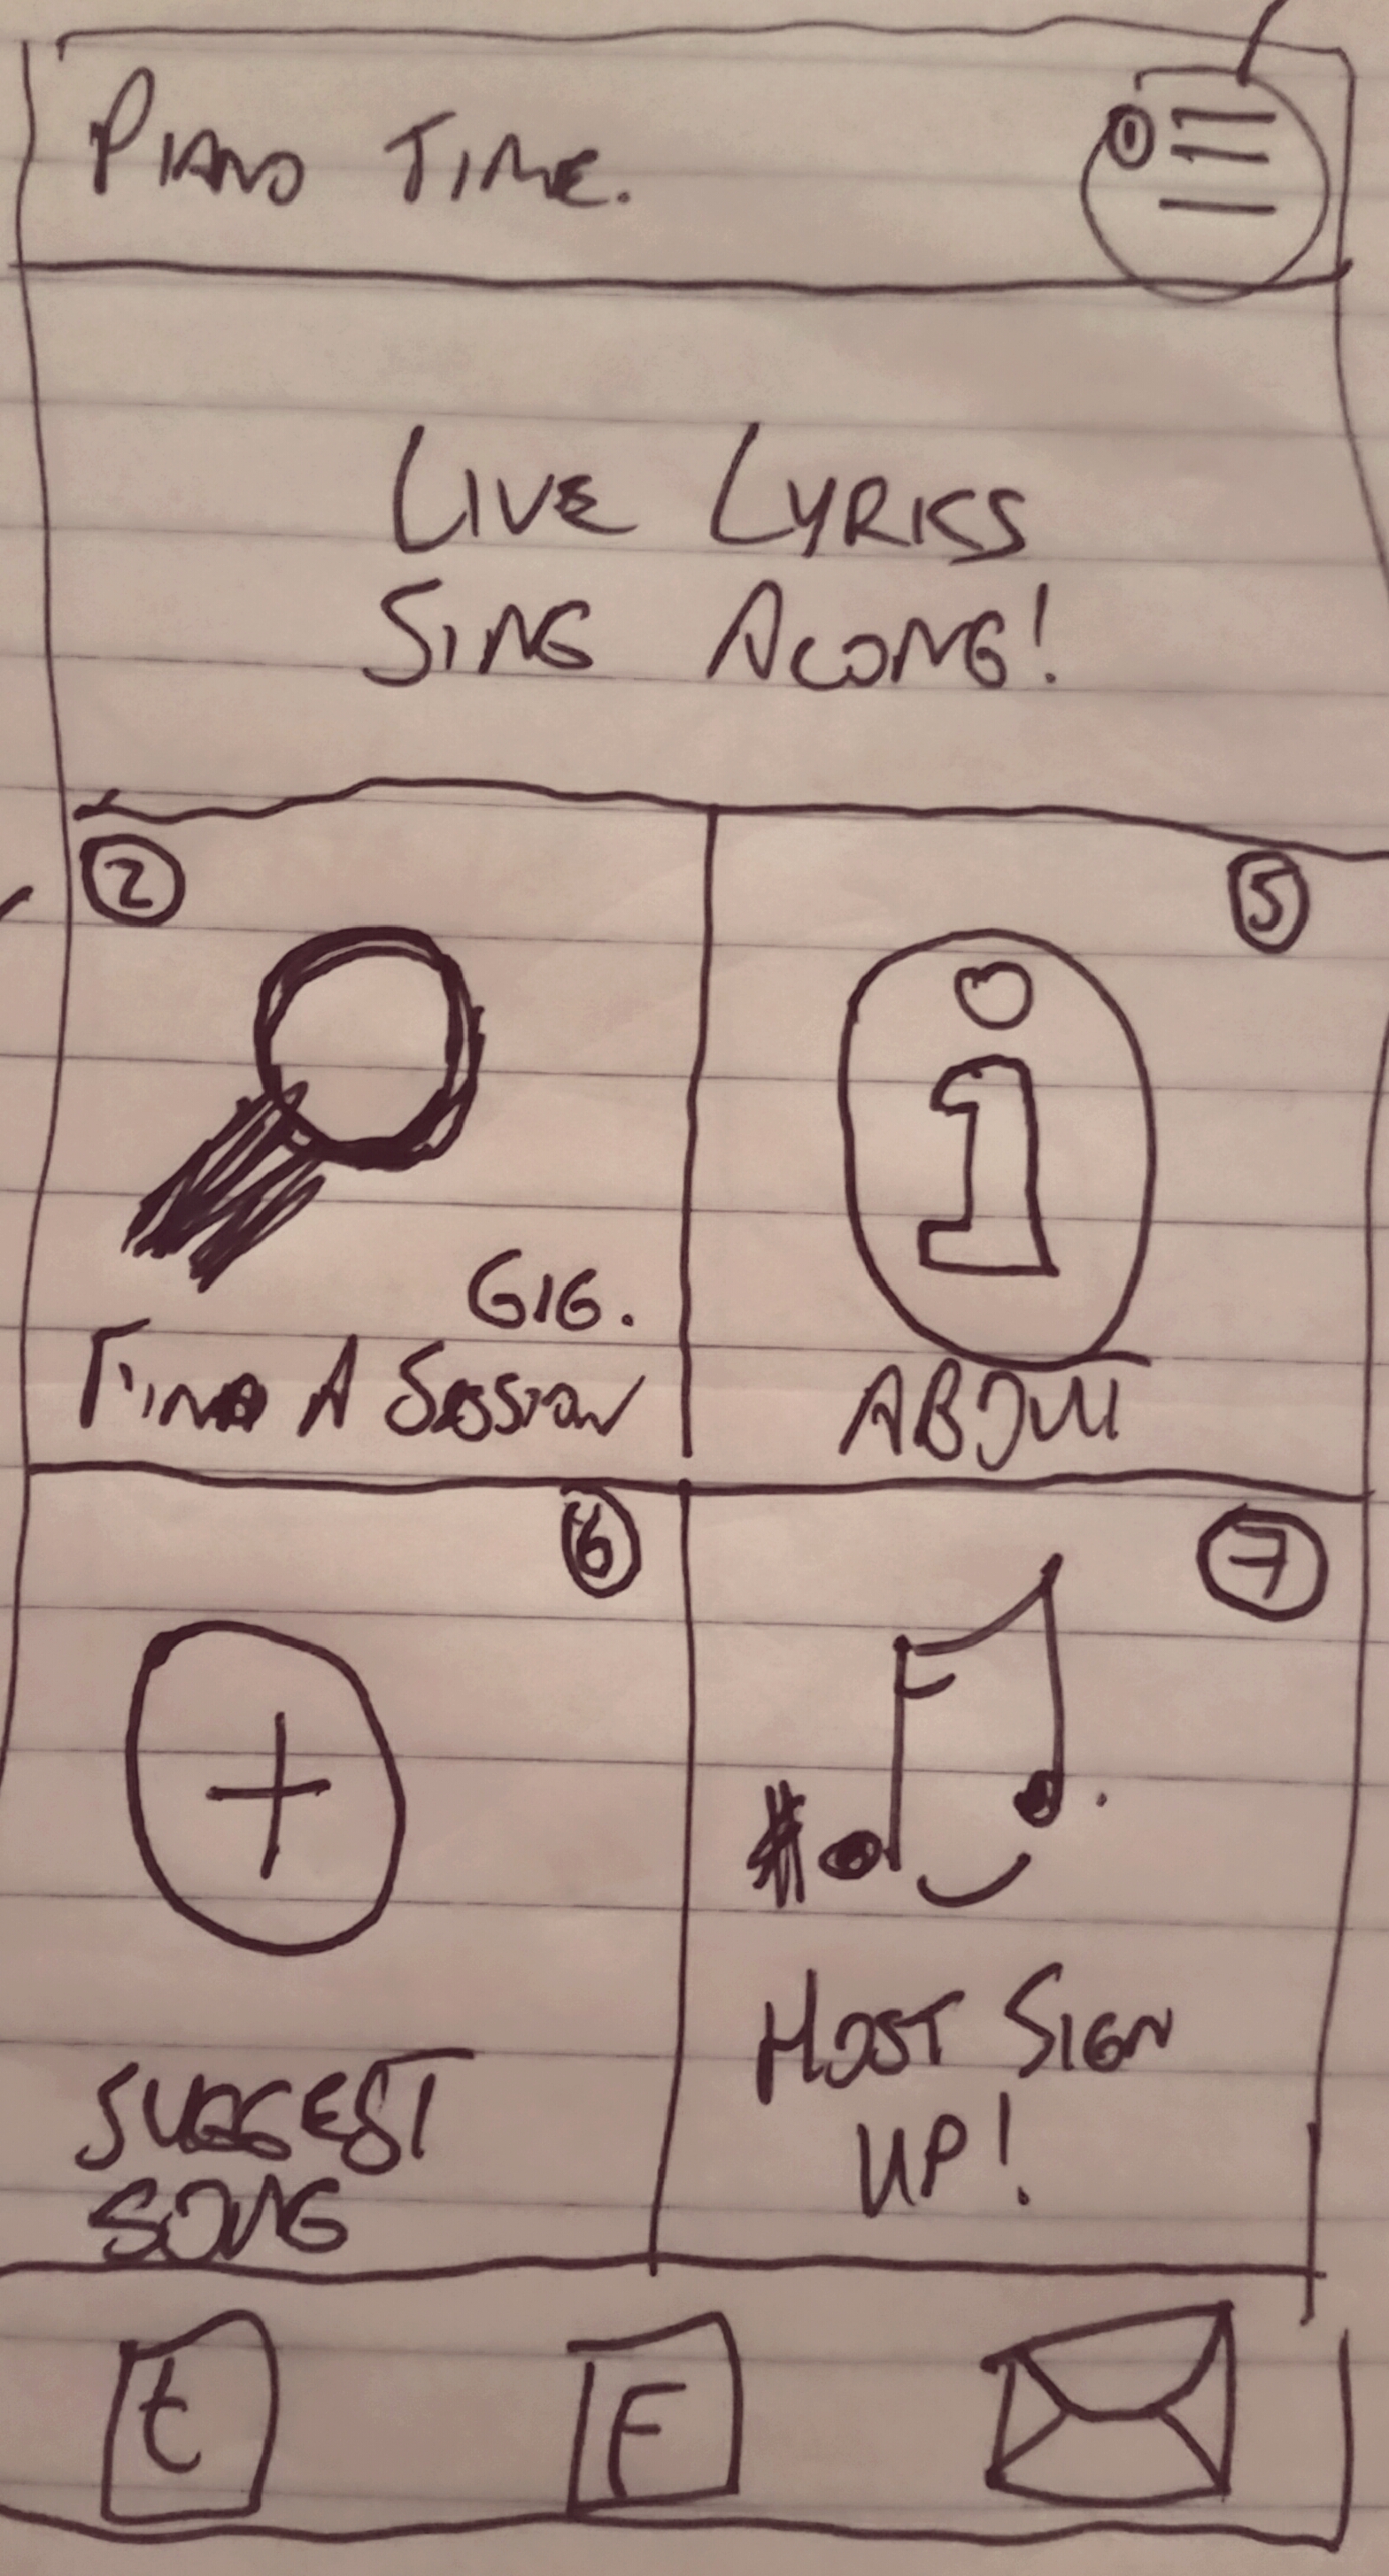 PIANO TIME.
1
LIVE LYRICS
SING ALONG!
2
5
GIG.
FIND A SESSION
ABOUT
6
7
#
SUGGEST
SONG
HOST SIGN
UP!
t
F